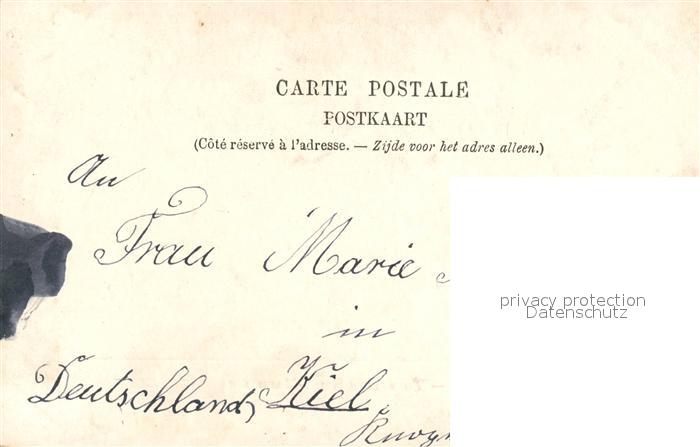 CARTE POSTALE
POSTKAART
(Côté réservé à l'adresse. — Zijde voor het adres alleen.)
An
Frau Marie
in
Deutschland, Kiel
privacy protection
Datenschutz